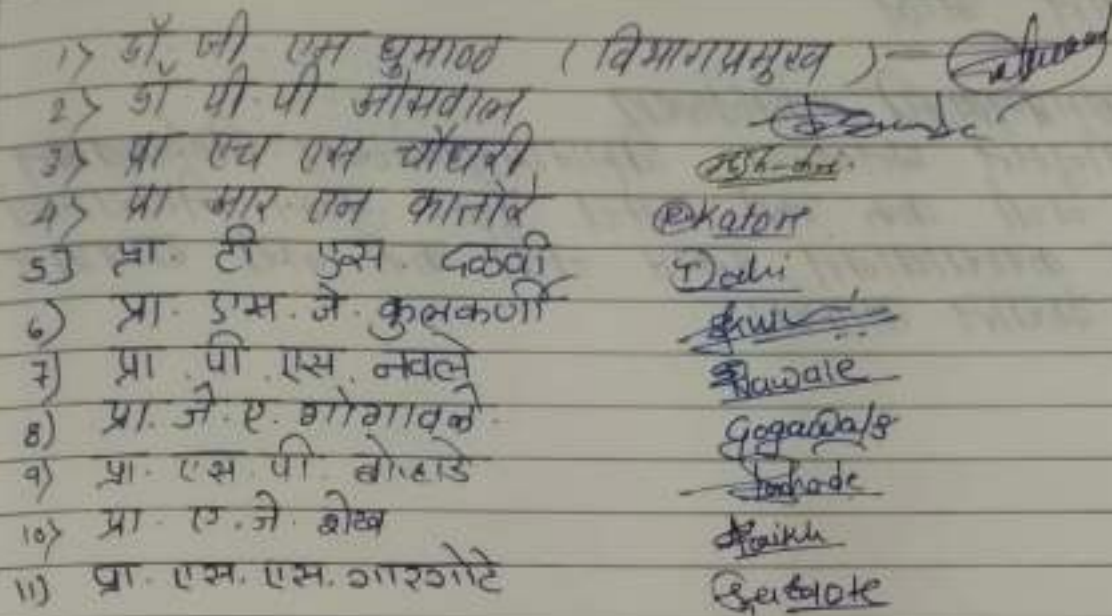 1) डॉ. जी एस धुमाळ (विभागप्रमुख) -
2) डॉ पी. पी ओसवाल
3) प्रा एच एस चौधरी
4) प्रा आर एन कातोरे RKatore
5) प्रा. टी एस. दळवी TDalvi
6) प्रा. एस. जे. कुलकर्णी
7) प्रा. पी. एस. नवले Nawale
8) प्रा. जे. ए. गोगावले. Gogawale
9) प्रा. एस. पी. बोऱ्हाडे
10) प्रा. ए. जे. शेख Shaikh
11) प्रा. एस. एस. गारगोटे